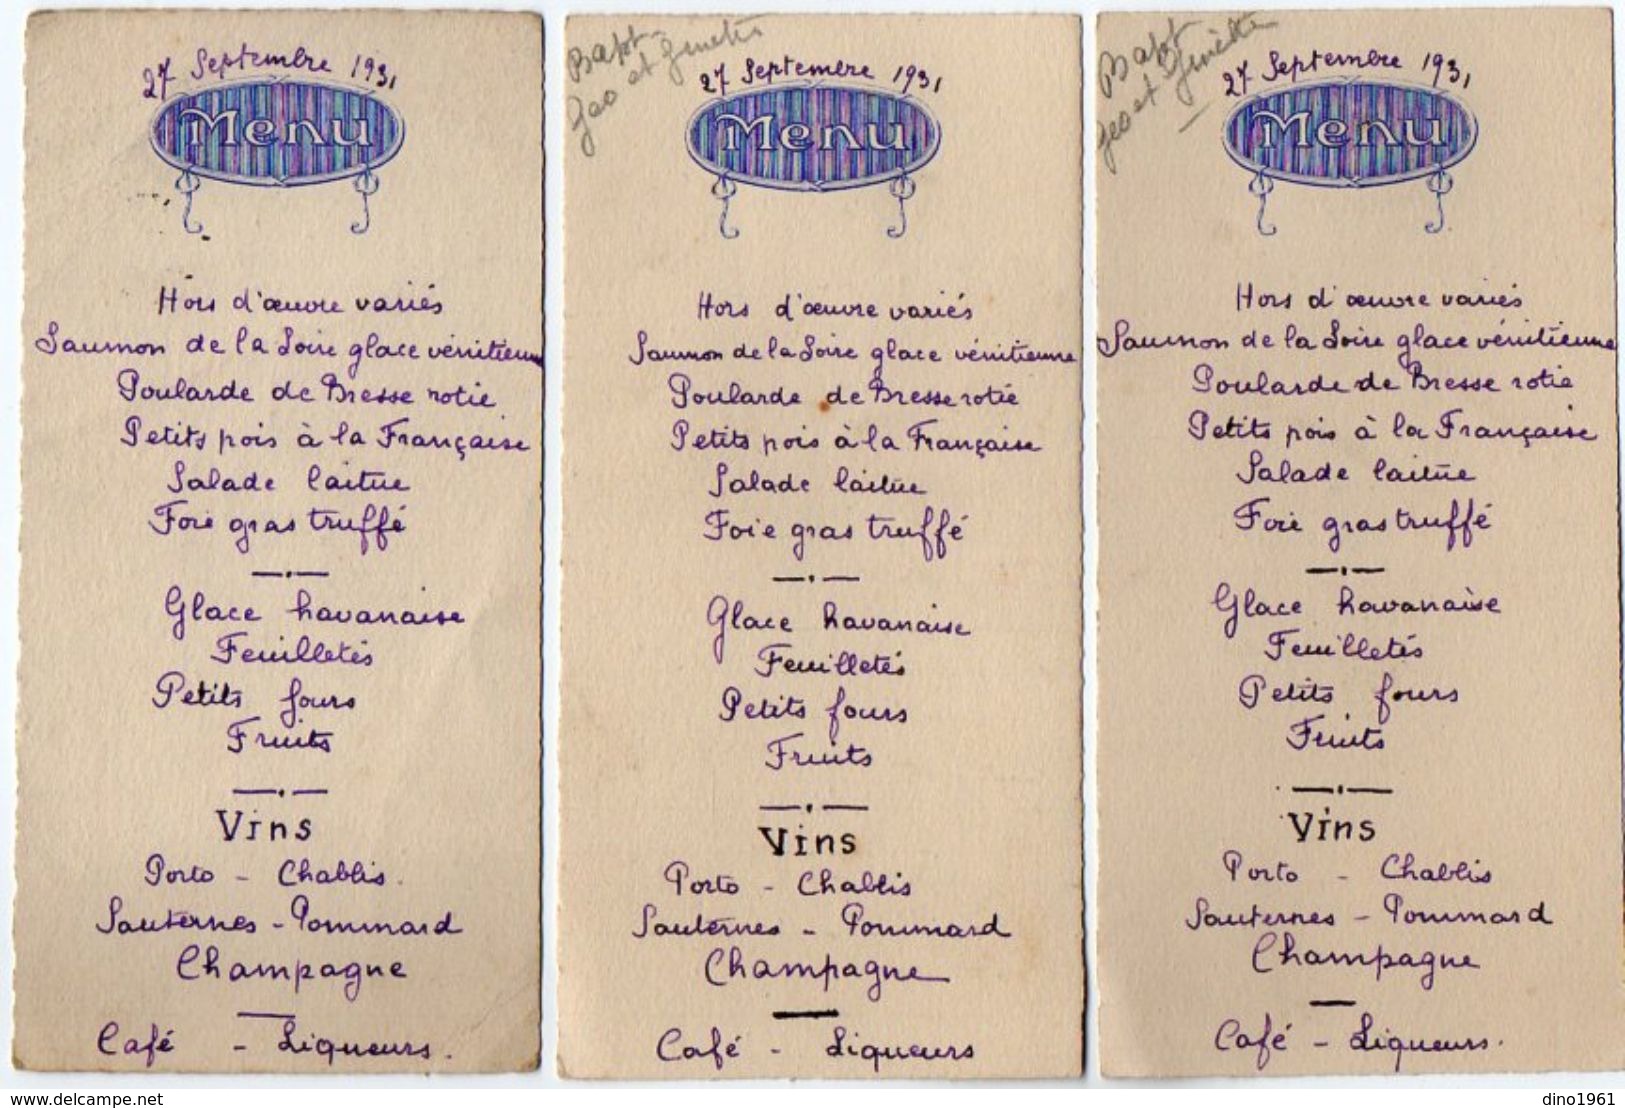 27 Septembre 1931
Menu
Hors d'œuvre variés
Saumon de la Loire glace vénitienne
Poularde de Bresse rotie
Petits pois à la Française
Salade laitüe
Foie gras truffé
Glace havanaise
Feuilletés
Petits fours
Fruits
Vins
Porto - Chablis.
Sauternes - Pommard
Champagne
Café - Liqueurs.
Bapt
Geo et Ginette
27 Septembre 1931
Menu
Hors d'œuvre variés
Saumon de la Loire glace vénitienne
Poularde de Bresse rotie
Petits pois à la Française
Salade laitüe
Foie gras truffé
Glace havanaise
Feuilletés
Petits fours
Fruits
Vins
Porto - Chablis
Sauternes - Pommard
Champagne
Café - Liqueurs
Bapt
Geo et Ginette
27 Septembre 1931
Menu
Hors d'œuvre variés
Saumon de la Loire glace vénitienne
Poularde de Bresse rotie
Petits pois à la Française
Salade laitüe
Foie gras truffé
Glace havanaise
Feuilletés
Petits fours
Fruits
Vins
Porto - Chablis
Sauternes - Pommard
Champagne
Café - Liqueurs.
www.delcampe.net
dino1961